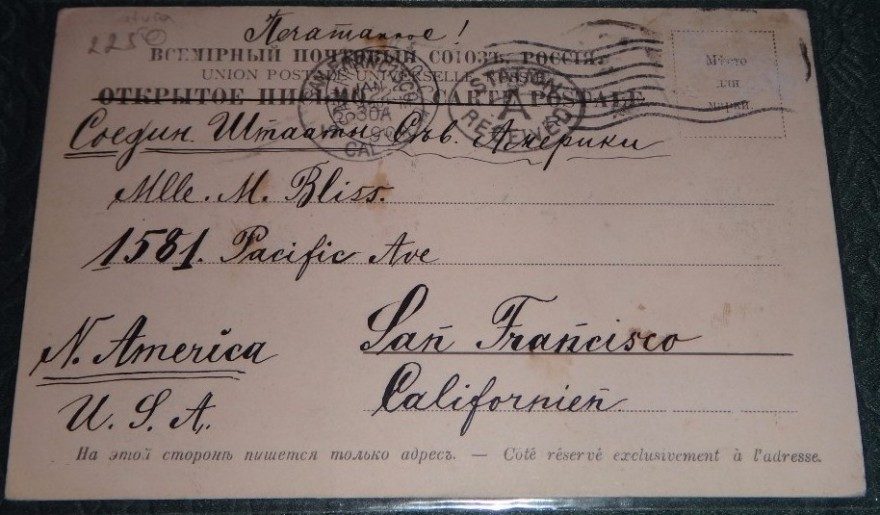 2250
Печатанное!
ВСЕМІРНЫЙ ПОЧТОВЫЙ СОЮЗЪ. РОССІЯ.
UNION POSTALE UNIVERSELLE. RUSSIE.
Мѣсто
для
марки.
ОТКРЫТОЕ ПИСЬМО. — CARTE POSTALE
SAN FRANCISCO
30A
CAL.
STATION
A
RECEIVED
Соедин. Штааты Сѣв. Америки
Mlle. M. Bliss.
1581. Pacific Ave
San Francisco
N. America
Californien
U. S. A.
На этой сторонѣ пишется только адресъ. — Côté réservé exclusivement à l'adresse.